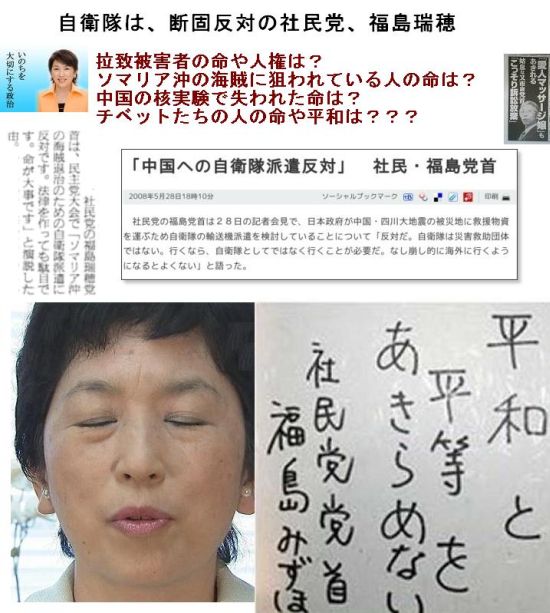 自衛隊は、断固反対の社民党、福島瑞穂
いのちを
大切にする政治
拉致被害者の命や人権は？
ソマリア沖の海賊に狙われている人の命は？
中国の核実験で失われた命は？
チベットたちの人の命や平和は？？？
「愛人マッサージ嬢」も
こっそり訴訟放棄」
「中国への自衛隊派遣反対」　社民・福島党首
2008年5月28日18時10分
ソーシャルブックマーク
印刷
社民党の福島党首は２８日の記者会見で、日本政府が中国・四川大地震の被災地に救援物資
を運ぶため自衛隊の輸送機派遣を検討していることについて「反対だ。自衛隊は災害救助団体
ではない。行くなら、自衛隊としてではなく行くことが必要だ。なし崩し的に海外に行くよう
になるとよくない」と語った。
社民党の福島瑞穂党
首は、民主党大会で「ソマリア沖
の海賊退治のための自衛隊派遣に
反対です。法律を作っても駄目で
す。命が大事です」と演説した
由。
平和と
平等を
あきらめない
社民党党首
福島みずほ